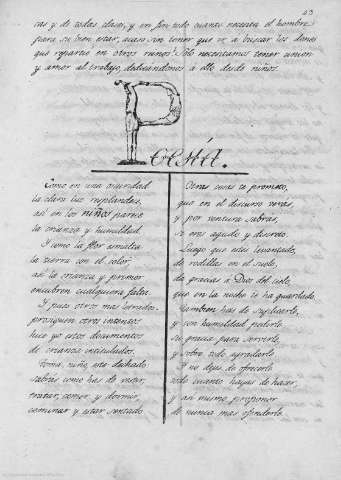 43
cas y de todas clases, y en fin todo cuanto necesita el hombre
para su bien estar, acaso sin tener que ir a buscar los dones
que repartio en otros reinos? Solo necesitamos tener union
y amor al trabajo, dedicandonos á ello desde niños.
Poesía.
Como en una oscuridad
la clara luz resplandece,
asi en los niños parece
la crianza y humildad.
Y como la flor esmalta
la tierra con el color,
asi la crianza y primor
encubren cualquiera falta.
Y pues otros mas
prosiguen otros intentos
hice yo estos documentos
de crianza intitulados.
Toma, niño, este dechado
sabras como has de vestir,
tratar, comer y dormir,
caminar y estar sentado.
Otras cosas te prometo,
que en el discurso veras,
y por ventura sabras,
si eres agudo y discreto.
Luego que estes levantado,
de rodillas en el suelo,
da gracias á Dios del cielo,
que en la noche te ha guardado.
Tambien has de suplicarle,
y con humildad pedirle
su gracia para servirle,
y sobre todo agradarle.
Y no dejes de ofrecerle
todo cuanto hayas de hacer,
y asi mismo proponer
de nunca mas ofenderle.